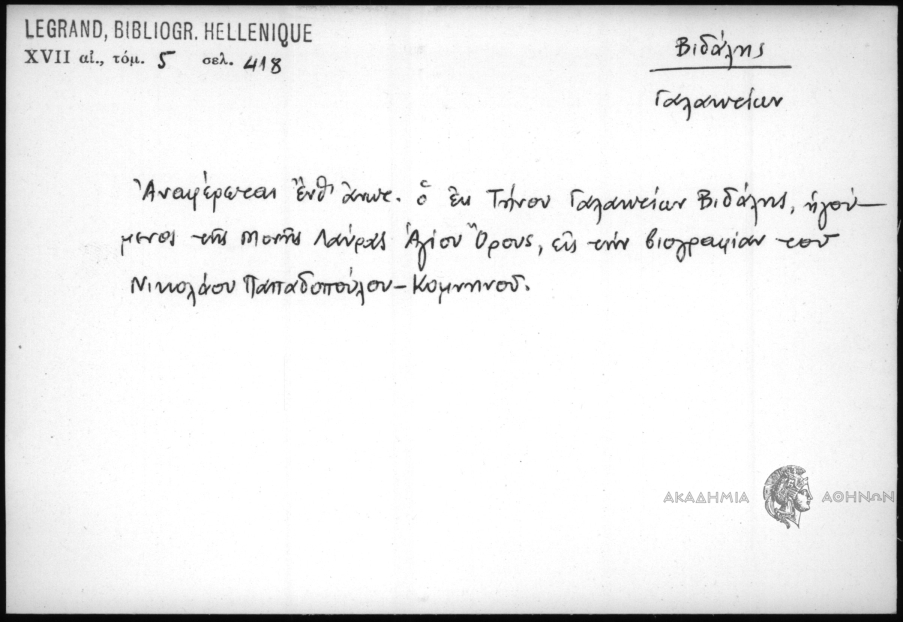 LEGRAND, BIBLIOGR. HELLENIQUE
XVII αἰ., τόμ. 5 σελ. 418
Βιδάλης
Γαλακτείων
Ἀναφέρεται ἔνθ' ἀνωτ. ὁ ἐκ Τήνου Γαλακτείων Βιδάλης, ἡγού-
μενος τῆς Μονῆς Λαύρας Ἁγίου Ὄρους, εἰς τὴν βιογραφίαν τοῦ
Νικολάου Παπαδοπούλου-Κομνηνοῦ.
ΑΚΑΔΗΜΙΑ ΑΘΗΝΩΝ